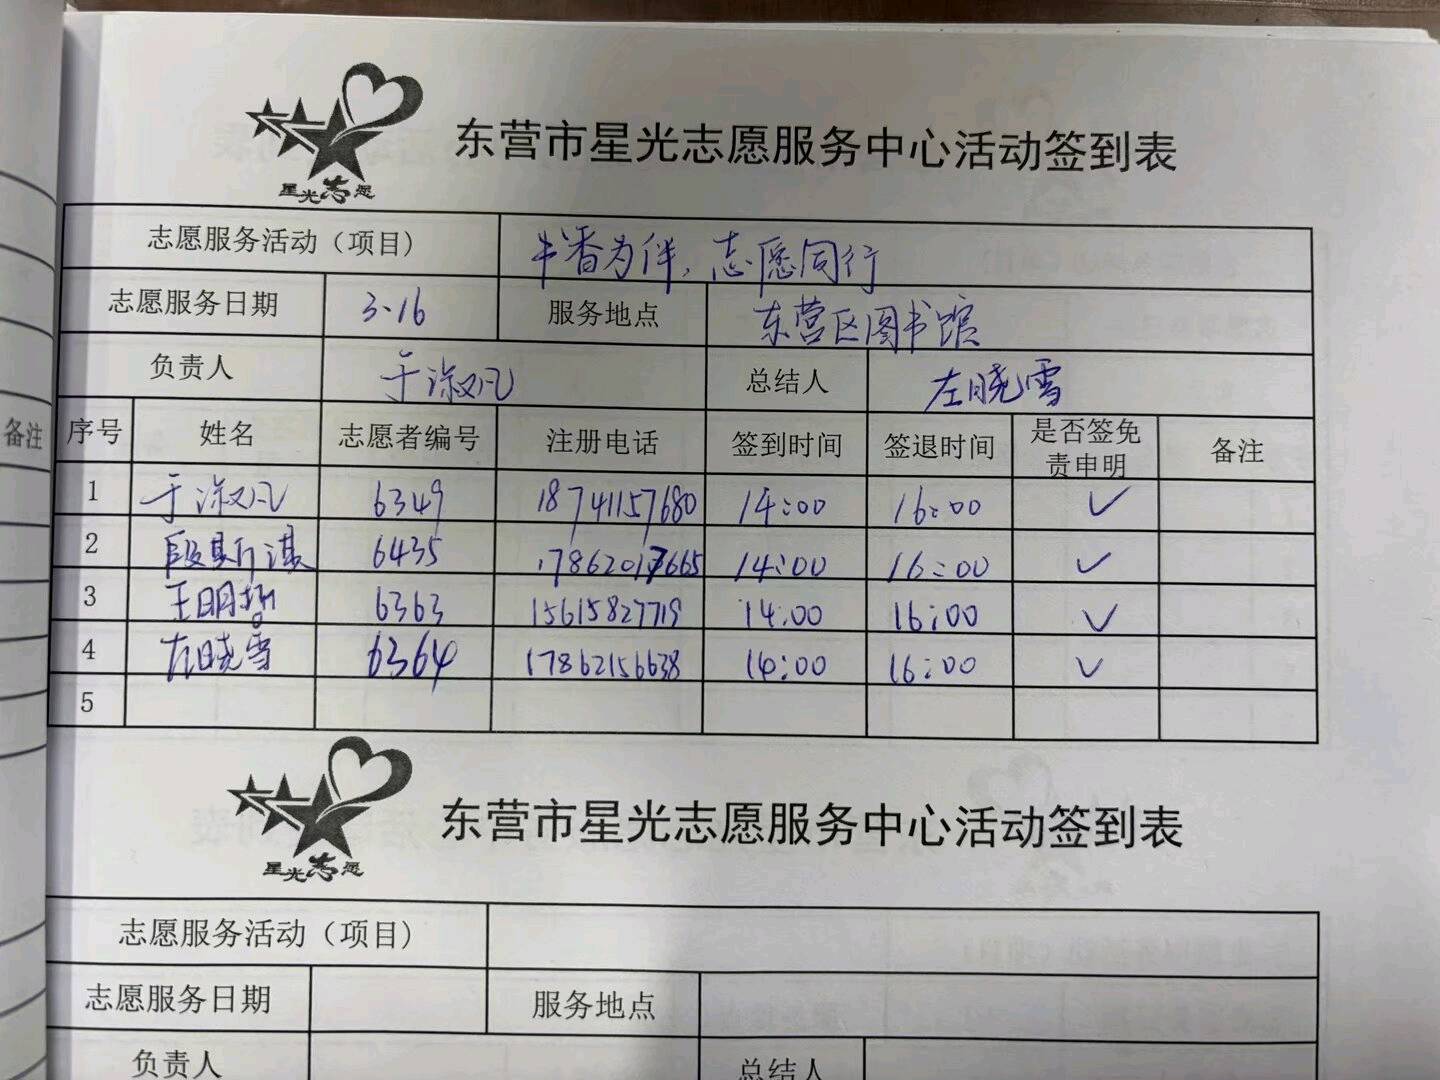 星光志愿
东营市星光志愿服务中心活动签到表
志愿服务活动（项目） 书香为伴，志愿同行
志愿服务日期 3.16 服务地点 东营区图书馆
负责人 于淑凤 总结人 左晓雪
备注
序号 姓名 志愿者编号 注册电话 签到时间 签退时间 是否签免责申明 备注
1 于淑凤 6349 18741157680 14:00 16:00 ✓
2 段斯淇 6435 17862017665 14:00 16:00 ✓
3 王明哲 6363 15615827719 14:00 16:00 ✓
4 左晓雪 6364 17862156638 14:00 16:00 ✓
5
星光志愿
东营市星光志愿服务中心活动签到表
志愿服务活动（项目）
志愿服务日期 服务地点
负责人 总结人